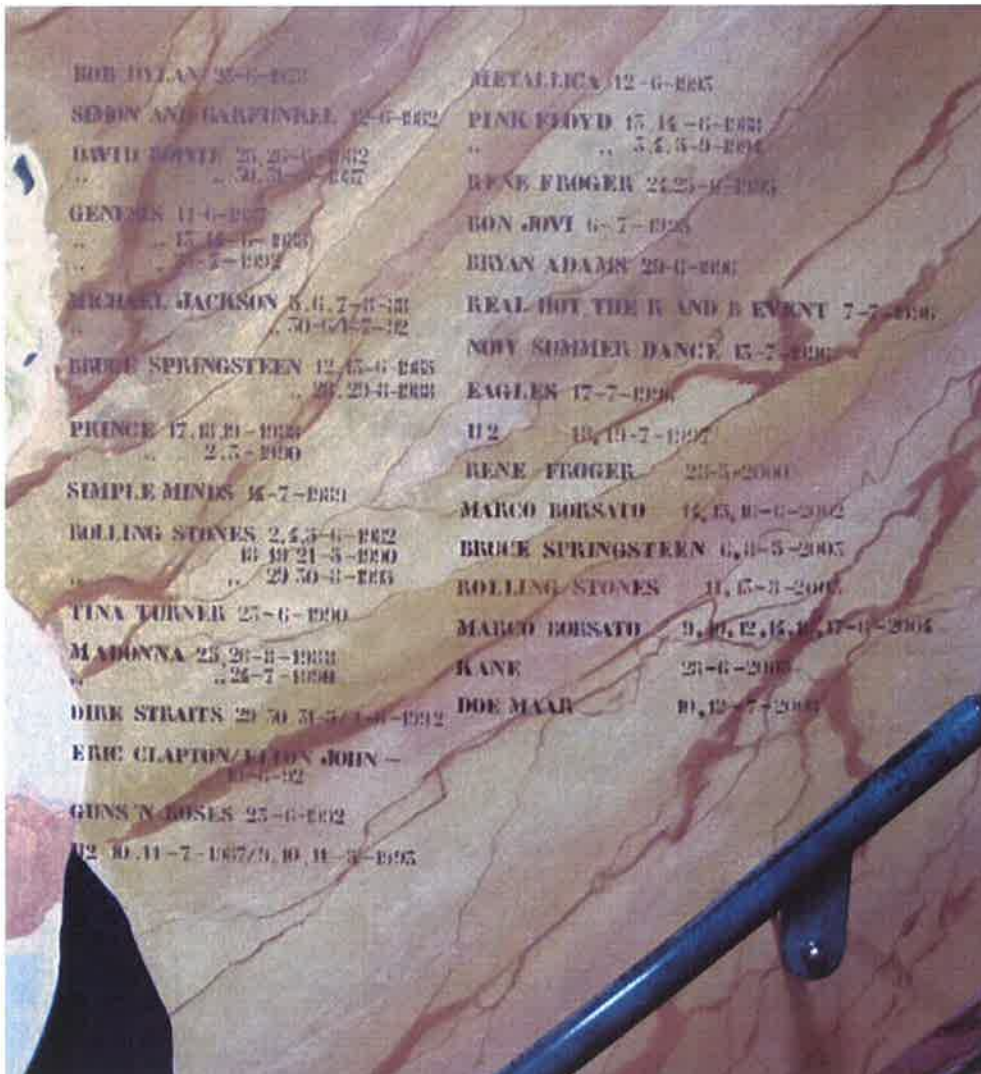 BOB DYLAN 23-6-1978
SIMON AND GARFUNKEL 12-6-1982
DAVID BOWIE 25,26-6-1982
.. .. 30,31-5-1987
GENESIS 11-6-1987
.. .. 13,14-6-1988
.. .. -7-1992
MICHAEL JACKSON 5,6,7-8-88
.. .. 30-6/1-7-92
BRUCE SPRINGSTEEN 12,13-6-1985
.. 28,29-8-1988
PRINCE 17,18,19-1988
.. 2,3-1990
SIMPLE MINDS 14-7-1989
ROLLING STONES 2,4,5-6-1982
18 19 21-5-1990
.. .. 29 30-8-1998
TINA TURNER 23-6-1990
MADONNA 25,26-8-1988
.. .. 24-7-1990
DIRE STRAITS 29 30 31-5/1-6-1992
ERIC CLAPTON/ELTON JOHN -
-6-92
GUNS 'N ROSES 23-6-1992
U2 10,11-7-1987/9,10,11-8-1993
METALLICA 12-6-1993
PINK FLOYD 13,14-6-1988
.. .. 3,4,5-9-1994
RENE FROGER 24,25-6-1995
BON JOVI 6-7-1995
BRYAN ADAMS 29-6-1996
REAL HOT THE R AND B EVENT 7-7-1996
NOW SUMMER DANCE 13-7-1996
EAGLES 17-7-1996
U2 18,19-7-1997
RENE FROGER 28-5-2000
MARCO BORSATO 14,15,16-6-2002
BRUCE SPRINGSTEEN 6,8-5-2003
ROLLING STONES 11,13-8-2003
MARCO BORSATO 9,10,12,14,16,17-6-2004
KANE 28-6-2003
DOE MAAR 10,12-7-2008